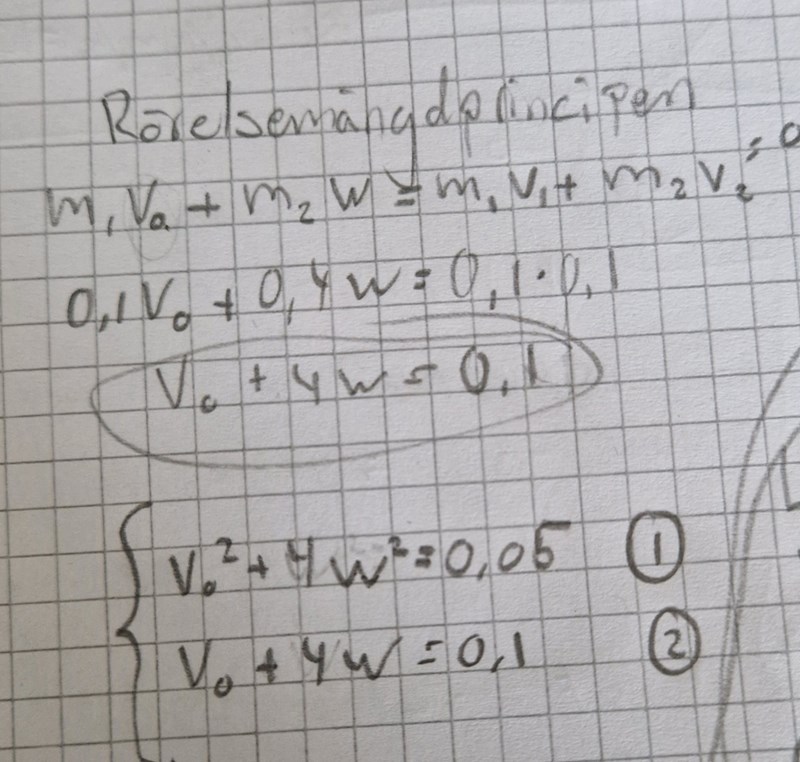 Rörelsemängdprincipen
m₁V₀ + m₂ W = m₁V₁ + m₂V₂ = 0
0,1V₀ + 0,4W = 0,1·0,1
V₀ + 4W = 0,1
V₀² + 4W² = 0,05 ①
V₀ + 4W = 0,1 ②